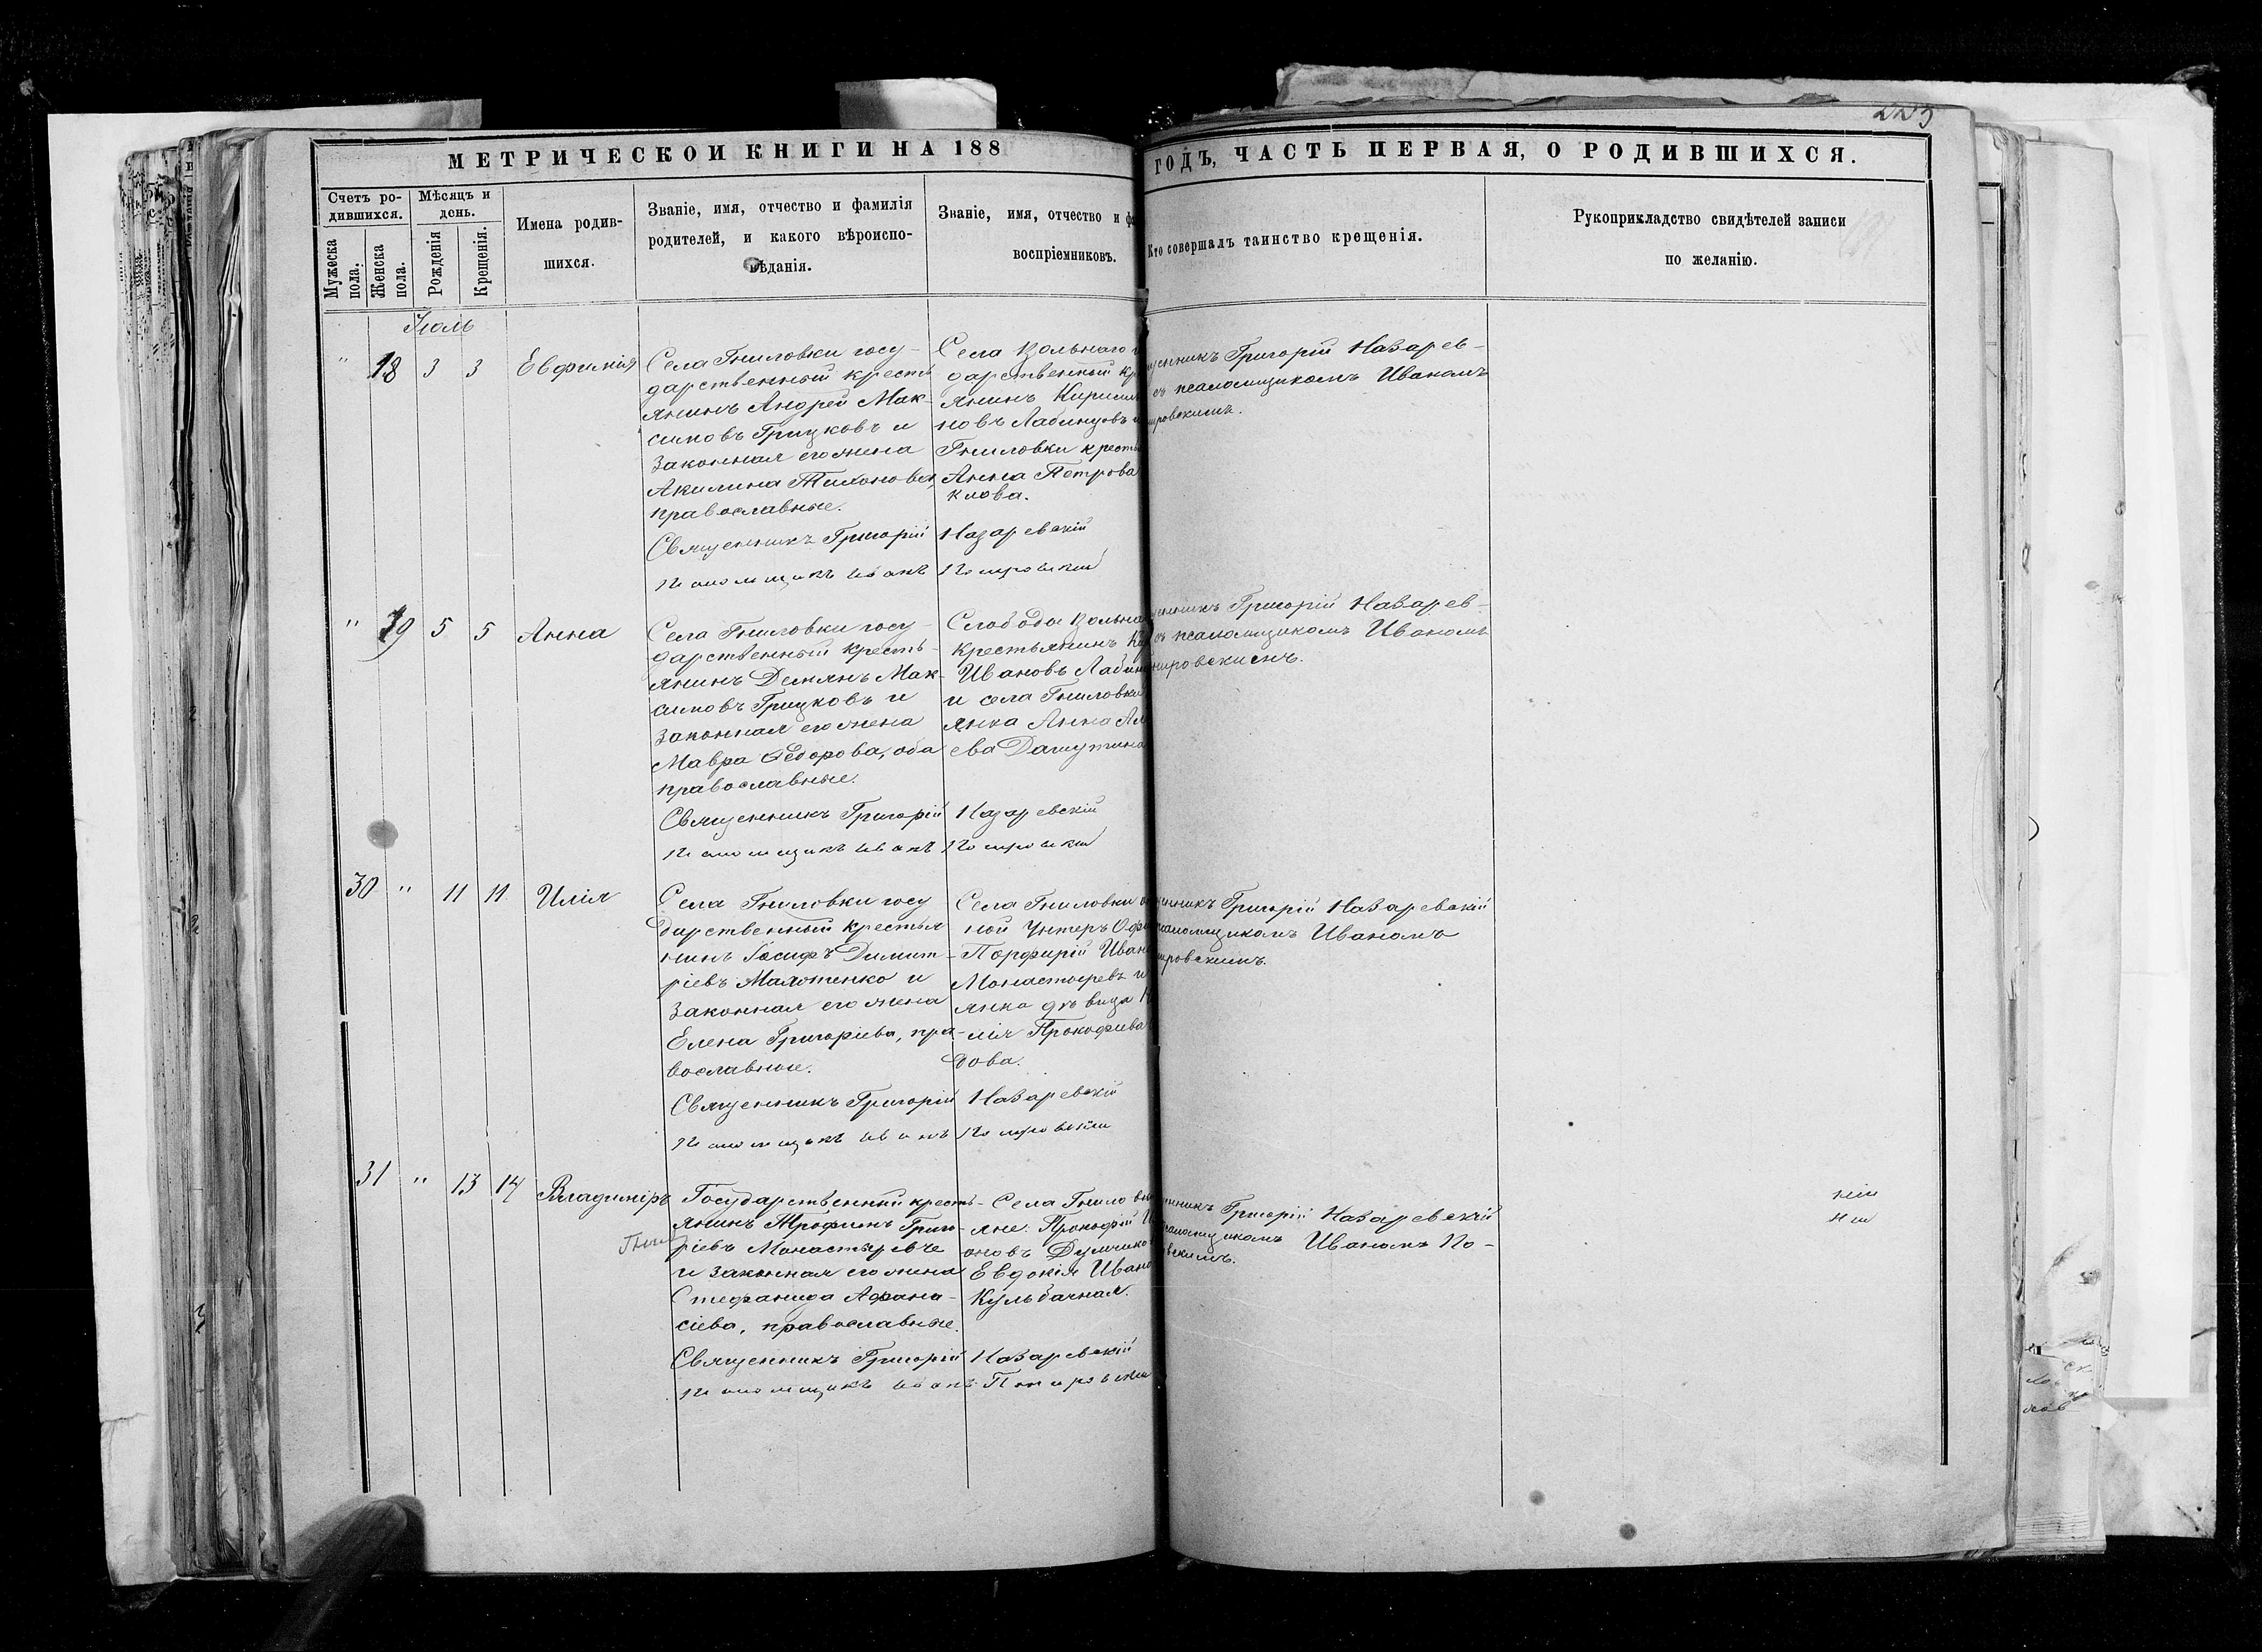 223
МЕТРИЧЕСКОЙ КНИГИ НА 188
ГОДЪ, ЧАСТЬ ПЕРВАЯ, О РОДИВШИХСЯ.
Счетъ ро-
дившихся.
Мужеска пола.
Женска пола.
Мѣсяцъ и
день.
Рожденія
Крещенія.
Имена родив-
шихся.
Званіе, имя, отчество и фамилія
родителей, и какого вѣроиспо-
вѣданія.
Званіе, имя, отчество и
воспріемниковъ.
Кто совершалъ таинство крещенія.
Рукоприкладство свидѣтелей записи
по желанію.
Іюль
" 18 3 3 Евфимія
Села Гниловки госу-
дарственный кресть
янинъ Андрей Мак-
симовъ Грицковъ и
законная его жена
Акилина Тихонова,
православные.
Села Вольнаго
дарственный кр
янинъ Кирилъ
новъ Лабинцовъ и
Гниловки кресть
Анна Петрова
кова.
щенникъ Григорій Назарев-
съ псаломщикомъ Иваномъ
тировскимъ.
Священникъ Григорій Назаревскій
Псаломщикъ Иванъ
" 19 5 5 Анна
Села Гниловки госу-
дарственный кресть-
янинъ Демянъ Мак-
симовъ Грицковъ и
законная его жена
Мавра Ѳедорова, оба
православные.
Слободы Вольна
крестьянинъ
Ивановъ Лабин
и села Гниловки
янка Анна Ал
ева Дашутина
щенникъ Григорій Назарев-
съ псаломщикомъ Иваномъ
тировскимъ.
Священникъ Григорій Назаревскій
Псаломщикъ Иванъ
30 " 11 11 Илія
Села Гниловки госу
дарственный крестья
нинъ Іосифъ Димит-
ріевъ Малотенко и
законная его жена
Елена Григоріева, пра-
вославные.
Села Гниловки
ной Унтеръ Офи
Порфирій Иван
Монастыревъ и
янка дѣвица
лія Прокофіева
дова.
щенникъ Григорій Назаревскій
псаломщикомъ Иваномъ
тировскимъ.
Священникъ Григорій Назаревскій
Псаломщикъ Иванъ
31 " 13 14 Владиміръ
Государственный кресть-
янинъ Трофимъ Григо-
ріевъ Монастыревъ
и законная его жена
Стефанида Афана-
сіева, православные.
Села Гнило
яне: Прокофій
оновъ Думчико
Евдокія Ивано
Кульбачная.
щенникъ Григорій Назаревскій
псаломщикомъ Иваномъ По-
вскимъ.
Священникъ Григорій Назаревскій
Псаломщикъ Иванъ